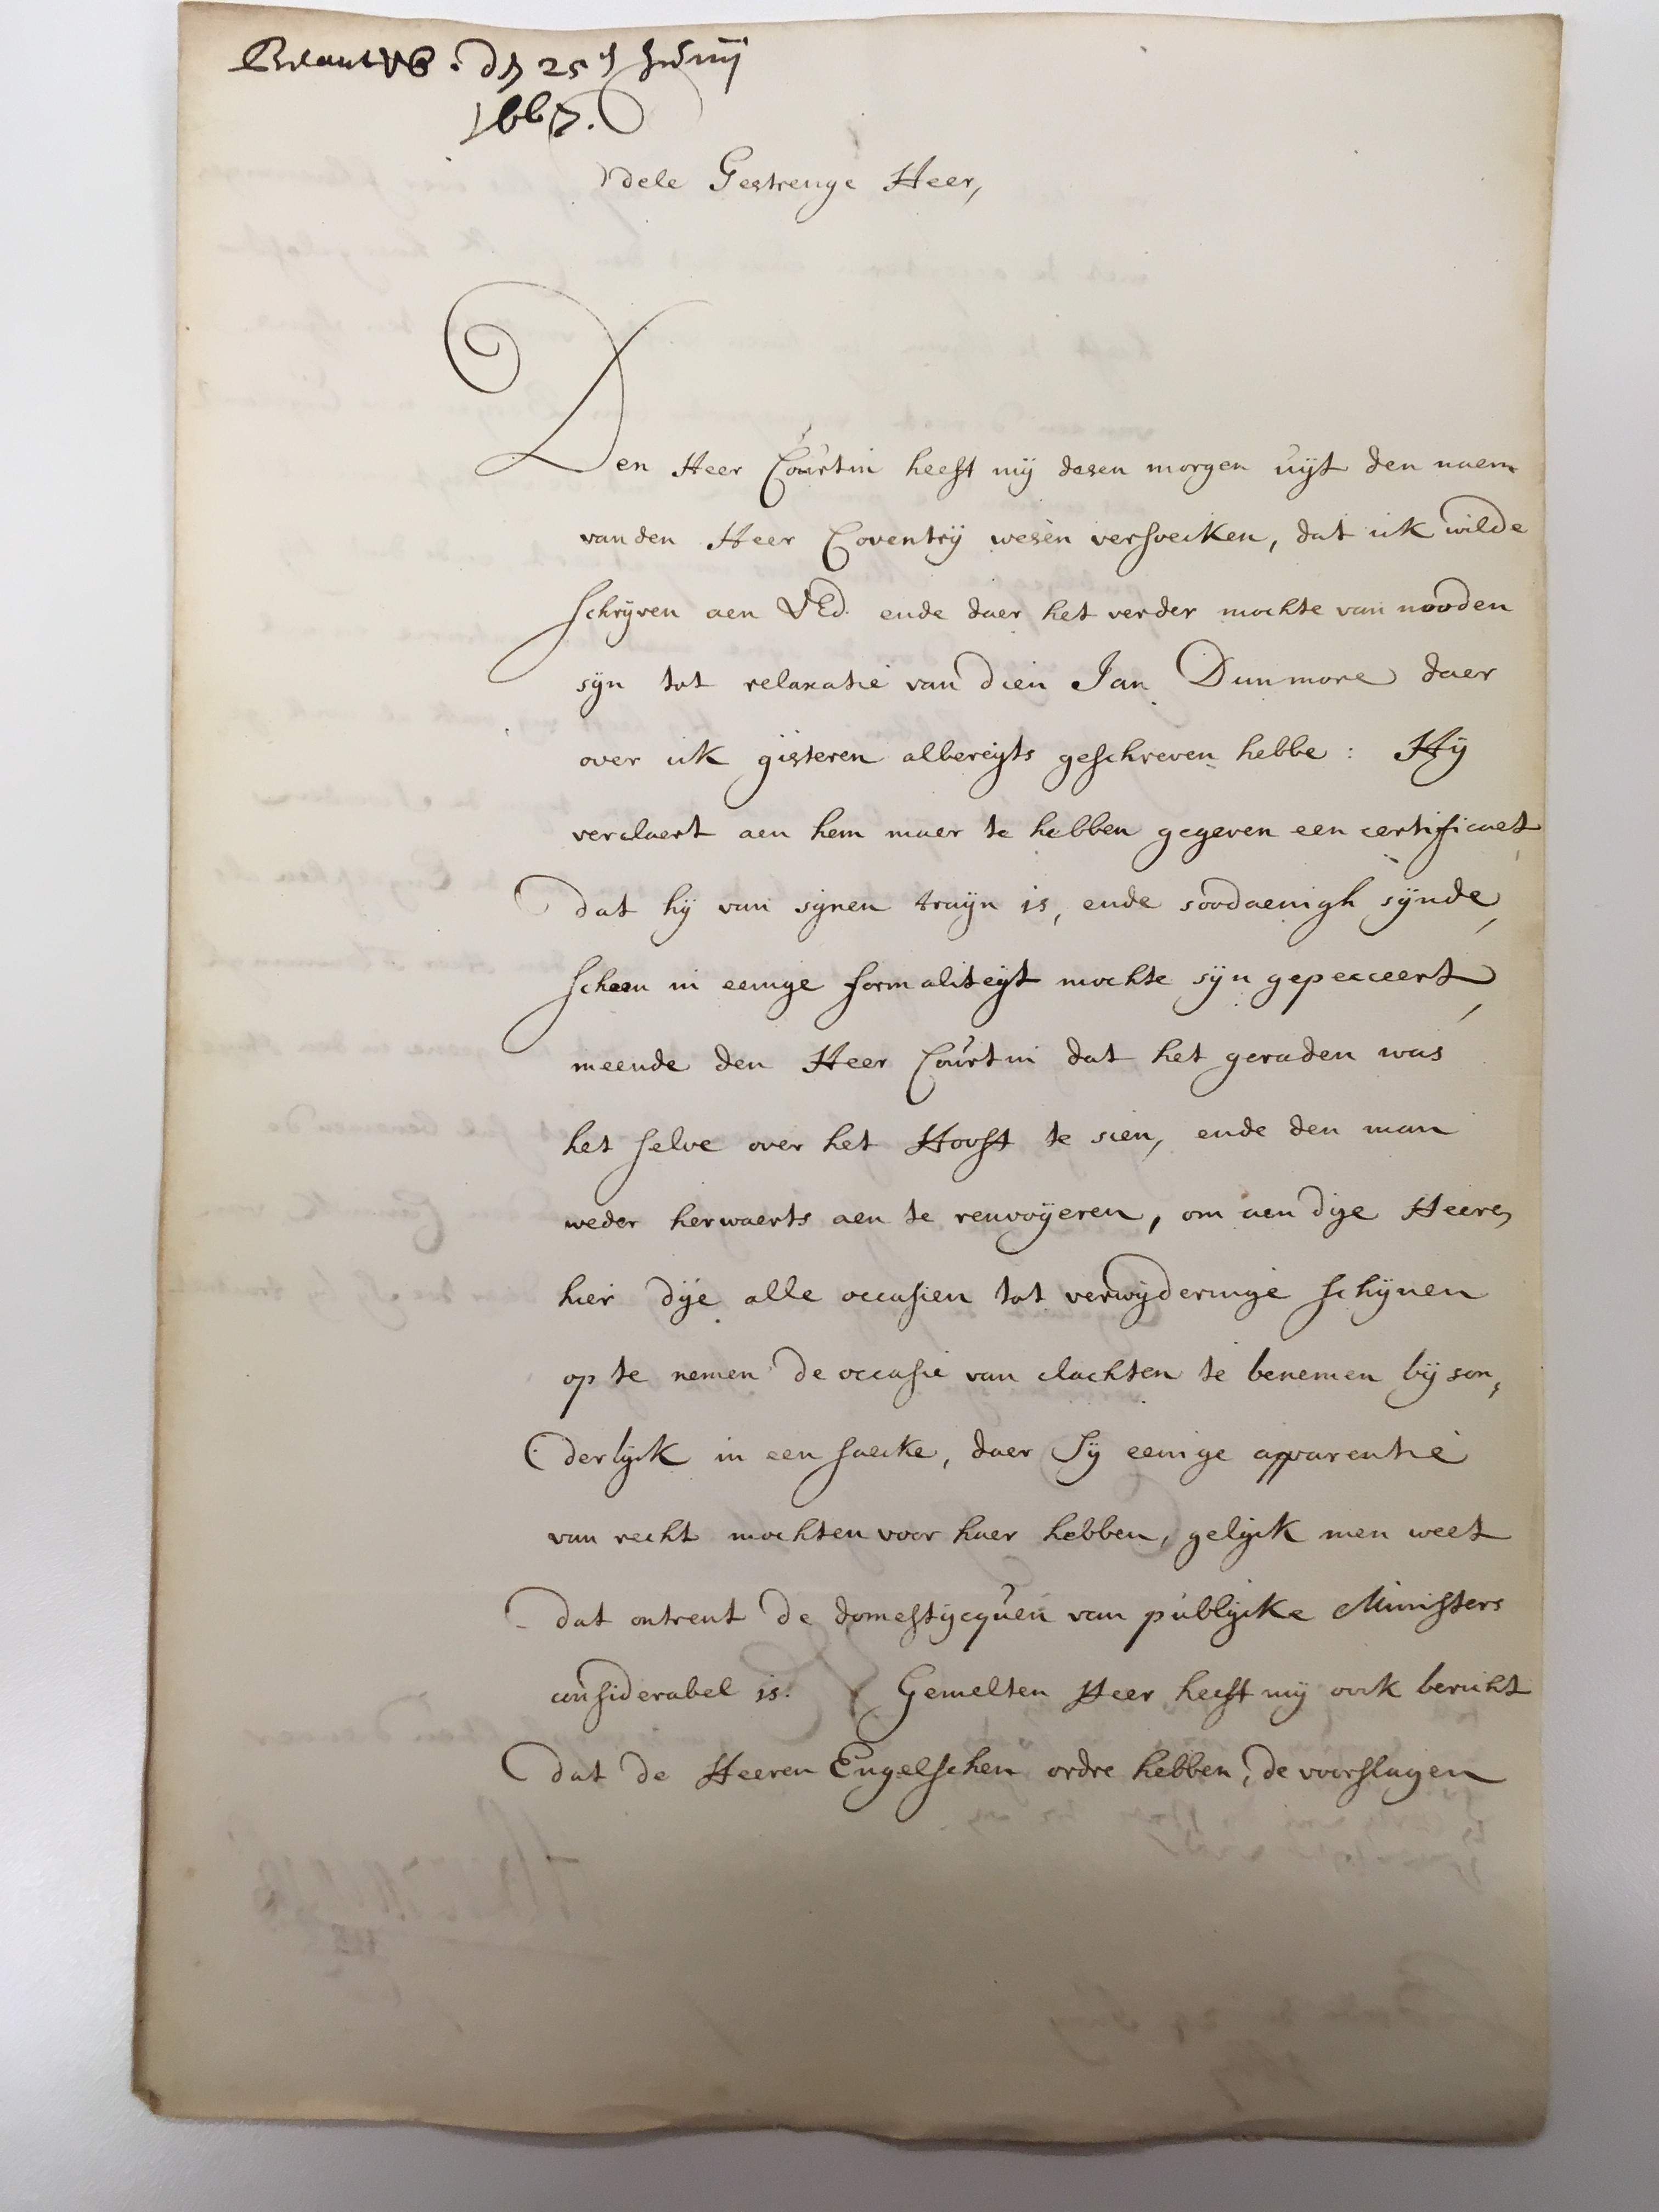 den 25 Junij
1667.
Edele Gestrenge Heer,
Den Heer Courtin heeft mij desen morgen uijt den naem
van den Heer Coventrij wesen versoecken, dat ick wilde
schrijven aen UEd. ende daer het verder mochte van nooden
sijn tot relaxatie van dien Jan Dunmore daer
over ick gisteren albereijts geschreven hebbe : Hij
verclaert aen hem maer te hebben gegeven een certificaet
dat hij van sijnen traijn is, ende soodaenigh sijnde,
schoon in eenige formaliteijt mochte sijn gepecceert,
meende den Heer Courtin dat het geraden was
het selve over het Hooft te sien, ende den man
weder herwaerts aen te renvoijeren, om aen dije Heeren
hier dije alle occasien tot verwijderinge schijnen
op te nemen de occasie van clachten te benemen bijson,
derlijck in een saecke, daer sij eenige apparentie
van recht mochten voor haer hebben, gelijck men weet
dat ontrent de domestijcquen van publijcke Ministers
considerabel is. Gemelten Heer heeft mij oock bericht
dat de Heeren Engelschen ordre hebben, de voorslagen